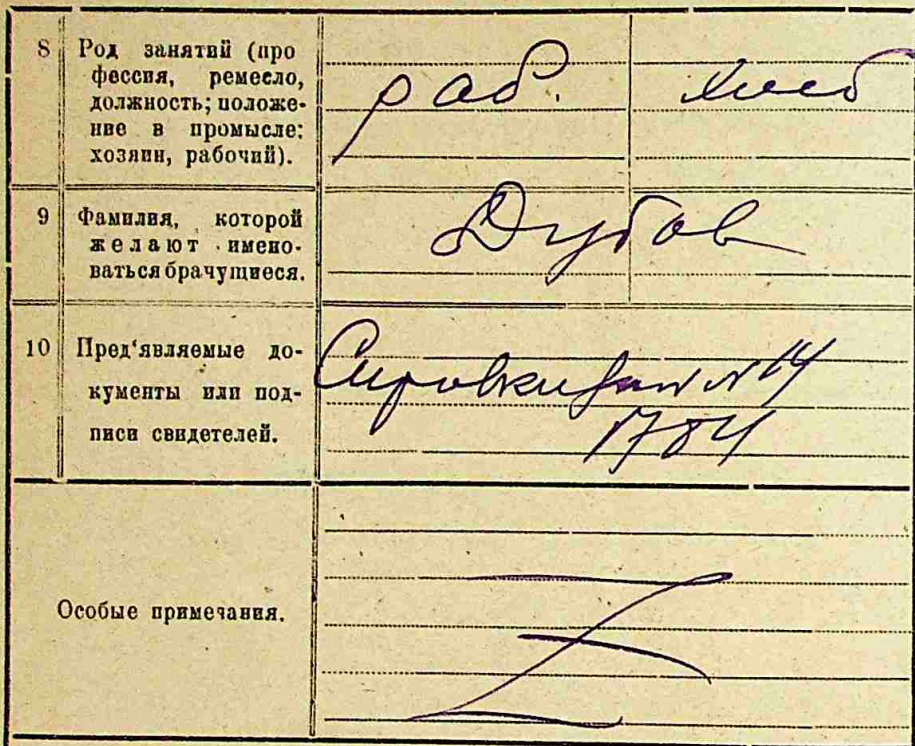 8 Род занятий (про
фессия, ремесло,
должность; положе-
ние в промысле:
хозяин, рабочий).
раб. хлеб
9 Фамилия, которой
желают имено-
ваться брачущиеся.
Дубов
10 Пред'являемые до-
кументы или под-
писи свидетелей.
№ 14
1784
Особые примечания.